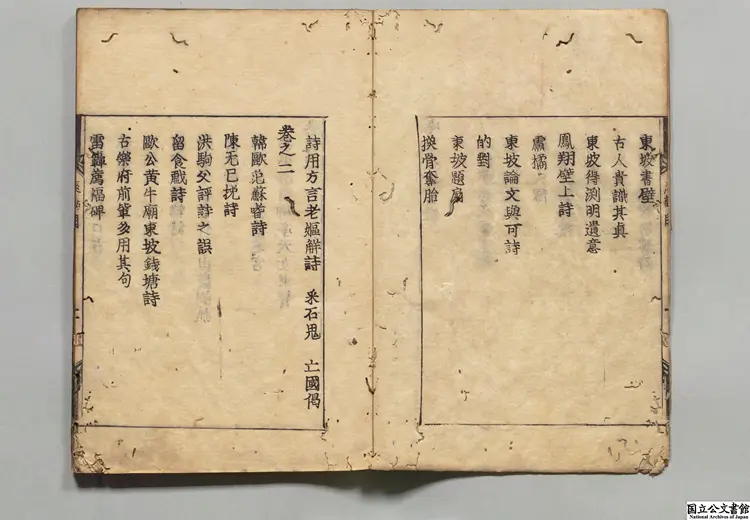 東坡書壁
古人貴識其真
東坡得渕明遺意
鳳翔壁上詩
盧橘
東坡論文與可詩
的對
東坡題扇
換骨奪胎
詩用方言老嫗解詩 采石鬼 亡國偈
卷之二
韓歐范蘇嗜詩
陳无己挽詩
洪駒父評詩之誤
留食戲詩
歐公黄牛廟東坡錢塘詩
古樂府前軰多用其句
雷轟薦福碑
国立公文書館
National Archives of Japan